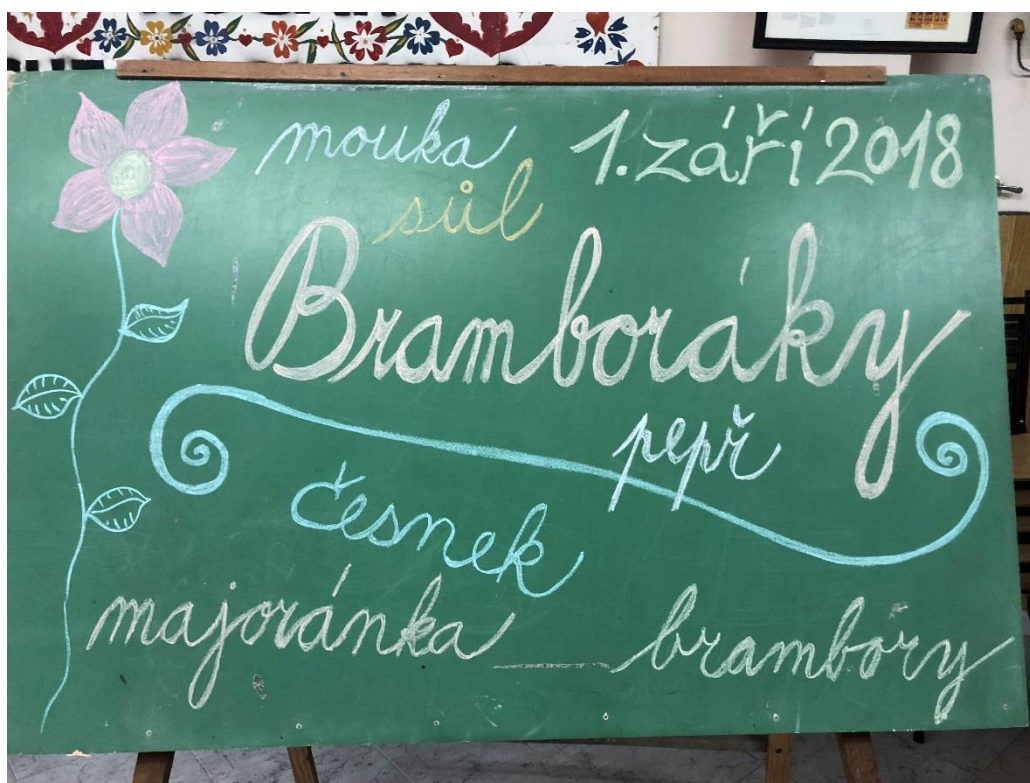 mouka 1. září 2018
sůl
Bramboráky
pepř
česnek
majoránka brambory